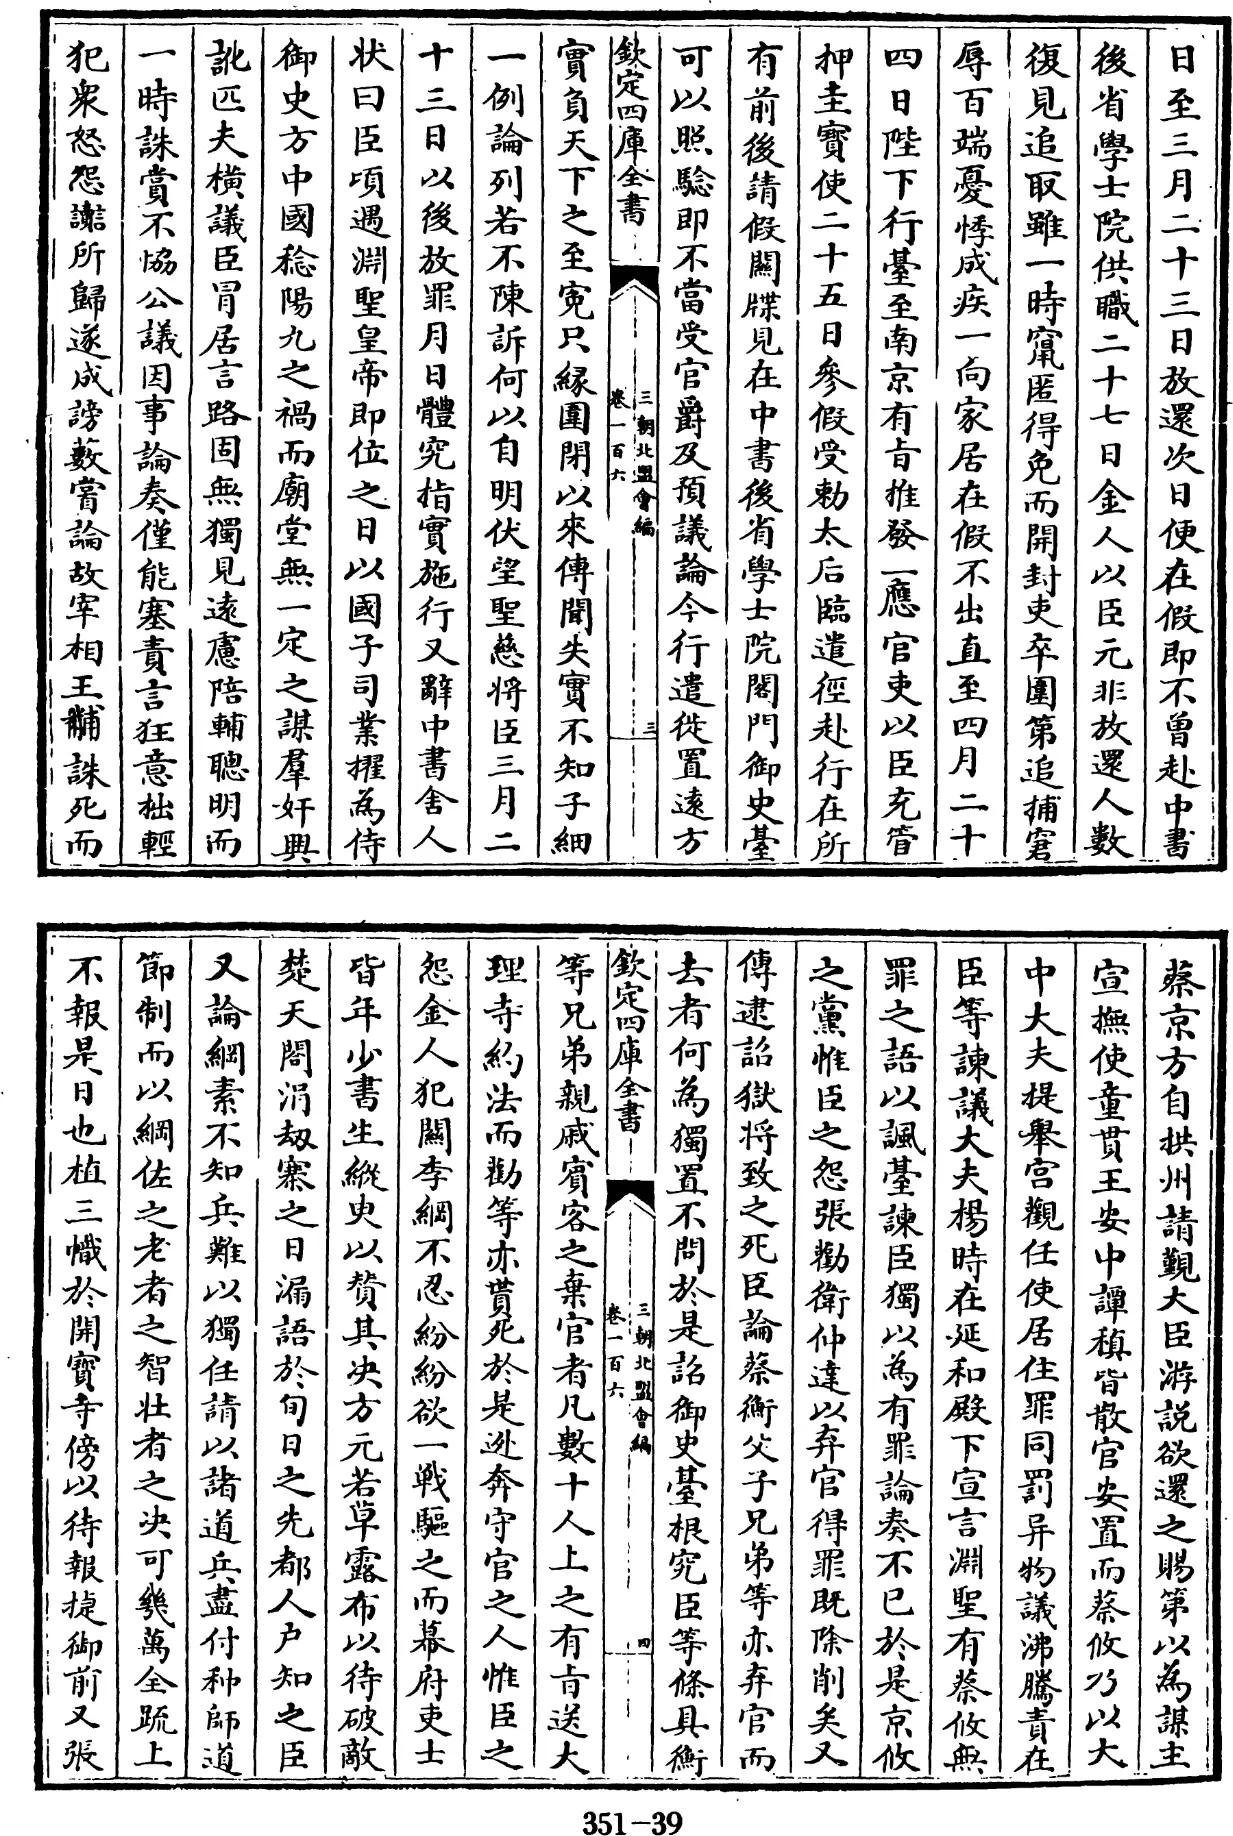 日至三月二十三日放還次日便在假即不曾赴中書
後省學士院供職二十七日金人以臣元非放還人數
復見追取雖一時竄匿得免而開封吏卒圍第追捕窘
辱百端憂悸成疾一向家居在假不出直至四月二十
四日陛下行臺至南京有旨推發一應官吏以臣充管
押圭寶使二十五日參假受勅太后臨遣徑赴行在所
有前後請假關牒見在中書後省學士院閤門御史臺
可以照驗即不當受官爵及預議論今行遣徙置遠方
欽定四庫全書
三朝北盟會編
卷一百六
三
實負天下之至寃只縁圍閉以來傳聞失實不知子細
一例論列若不陳訴何以自明伏望聖慈將臣三月二
十三日以後放罪月日體究指實施行又辭中書舍人
状曰臣頃遇淵聖皇帝即位之日以國子司業擢為侍
御史方中國稔陽九之禍而廟堂無一定之謀羣奸興
訛匹夫横議臣冐居言路固無獨見逺慮陪輔聰明而
一時誅賞不恊公議因事論奏僅能塞責言狂意拙輕
犯衆怒怨讟所歸遂成謗藪嘗論故宰相王黼誅死而
蔡京方自拱州請覲大臣游說欲還之賜第以為謀主
宣撫使童貫王安中譚稹皆散官安置而蔡攸乃以大
中大夫提舉宫觀任使居住罪同罰异物議沸騰責在
臣等諫議大夫楊時在延和殿下宣言淵聖有蔡攸無
罪之語以諷臺諫臣獨以為有罪論奏不已於是京攸
之黨惟臣之怨張勸衛仲達以弃官得罪既除削矣又
傳逮詔獄将致之死臣論蔡衡父子兄弟等亦弃官而
去者何為獨置不問於是詔御史臺根究臣等條具衡
欽定四庫全書
三朝北盟會編
卷一百六
四
等兄弟親戚賓客之棄官者凡數十人上之有旨送大
理寺約法而勸等亦貰死於是迯奔守官之人惟臣之
怨金人犯闕李綱不忍紛紛欲一戰驅之而幕府吏士
皆年少書生縱臾以賛其决方元若草露布以待破敵
楚天閣涓刼寨之日漏語於旬日之先都人户知之臣
又論綱素不知兵難以獨任請以諸道兵盡付种師道
節制而以綱佐之老者之智壯者之决可幾萬全疏上
不報是日也植三幟於開寳寺傍以待報捷御前又張
351-39